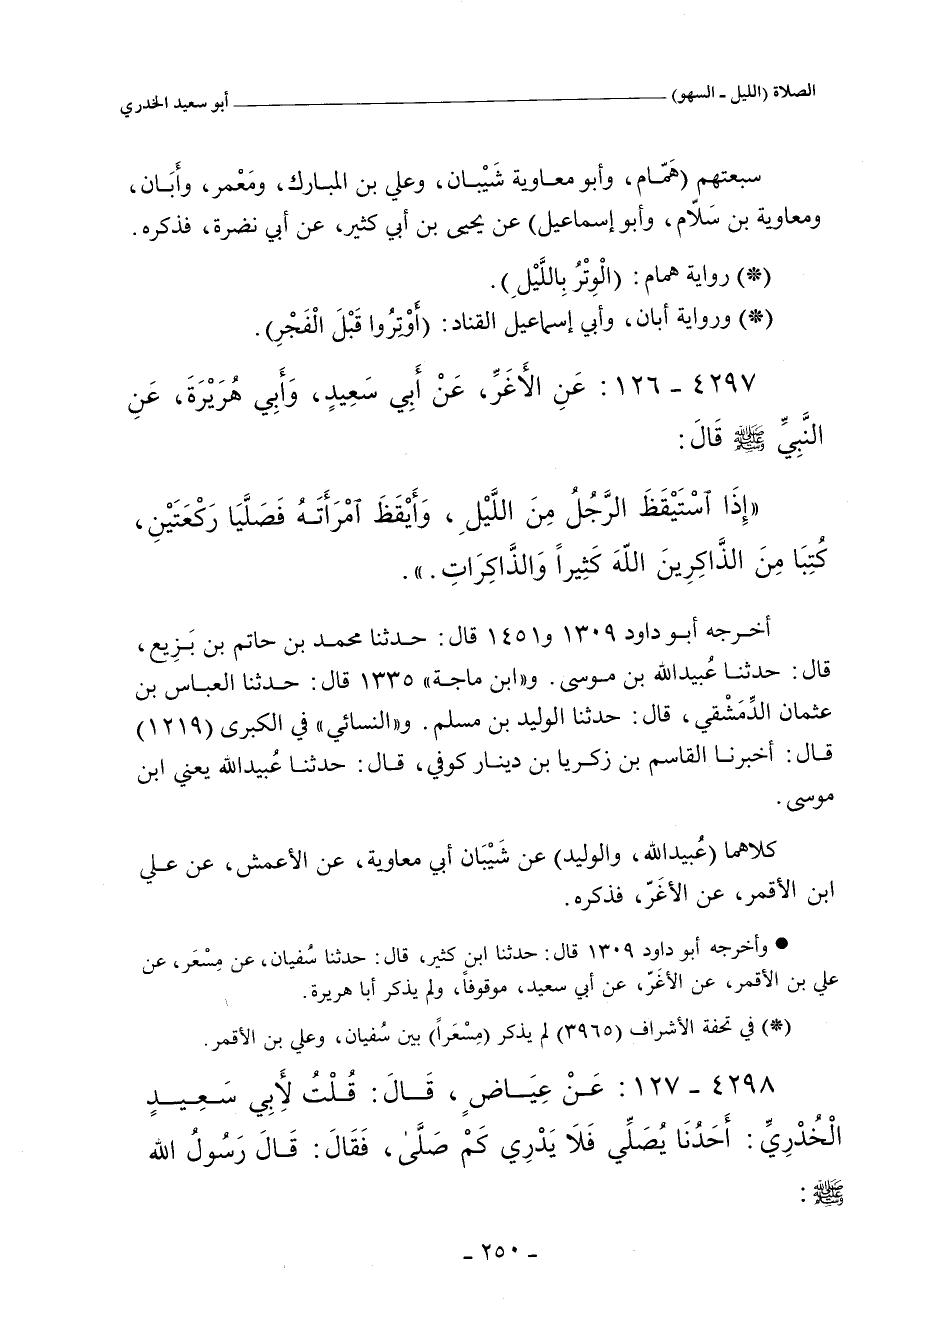 الصلاة (الليل - السهو) ـــــــــــــــــ أبو سعيد الخدري
سبعتهم (هَمَّام، وأبو معاوية شَيْبان، وعلي بن المبارك، ومَعْمر، وأَبَان،
ومعاوية بن سَلَّام، وأبو إسماعيل) عن يحيى بن أبي كثير، عن أبي نضرة، فذكره.
(*) رواية همام: (الْوِتْرُ بِاللَّيْلِ).
(*) ورواية أبان، وأبي إسماعيل القناد: (أَوْتِرُوا قَبْلَ الْفَجْرِ).
٤٢٩٧ - ١٢٦: عَنِ الأَغَرِّ، عَنْ أَبِي سَعِيدٍ، وَأَبِي هُرَيْرَةَ، عَنِ
النَّبِيِّ ﷺ قَالَ:
«إِذَا ٱسْتَيْقَظَ الرَّجُلُ مِنَ اللَّيْلِ، وَأَيْقَظَ ٱمْرَأَتَهُ فَصَلَّيَا رَكْعَتَيْنِ،
كُتِبَا مِنَ الذَّاكِرِينَ اللّهَ كَثِيراً وَالذَّاكِرَاتِ.».
أخرجه أبو داود ١٣٠٩ و١٤٥١ قال: حدثنا محمد بن حاتم بن بَزِيع،
قال: حدثنا عُبيدالله بن موسى. و«ابن ماجة» ١٣٣٥ قال: حدثنا العباس بن
عثمان الدِّمَشْقي، قال: حدثنا الوليد بن مسلم. و«النسائي» في الكبرى (١٢١٩)
قال: أخبرنا القاسم بن زكريا بن دينار كوفي، قال: حدثنا عُبيدالله يعني ابن
موسى.
كلاهما (عُبيدالله، والوليد) عن شَيْبَان أبي معاوية، عن الأعمش، عن علي
ابن الأقمر، عن الأغَرّ، فذكره.
● وأخرجه أبو داود ١٣٠٩ قال: حدثنا ابن كثير، قال: حدثنا سُفيان، عن مِسْعَر، عن
علي بن الأقمر، عن الأغَرّ، عن أبي سعيد، موقوفاً، ولم يذكر أبا هريرة.
(*) في تحفة الأشراف (٣٩٦٥) لم يذكر (مِسْعَراً) بين سُفيان، وعلي بن الأقمر.
٤٢٩٨ - ١٢٧: عَنْ عِيَاضٍ، قَالَ: قُلْتُ لأَبِي سَعِيدٍ
الْخُدْرِيِّ: أَحَدُنَا يُصَلِّي فَلَا يَدْرِي كَمْ صَلَّىٰ، فَقَالَ: قَالَ رَسُولُ الله
ﷺ:
- ٢٥٠ -